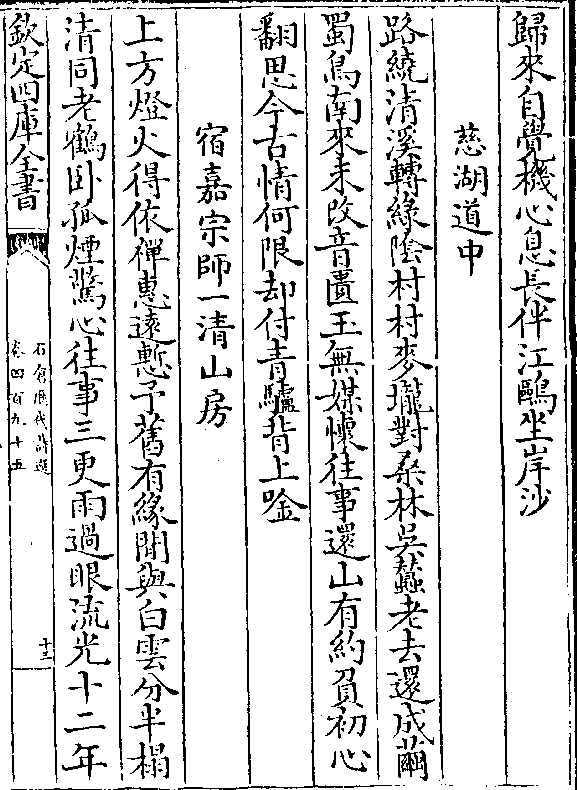 歸來自覺機心息長伴江鷗坐岸沙
慈湖道中
路繞清溪轉綠陰村村麥壠對桑林吳蠶老去還成繭
蜀鳥南來未改音匱玉無媒懷往事還山有約負初心
翻思今古情何限却付青驢背上唫
宿嘉宗師一清山房
上方燈火得依禪惠遠慙予舊有緣閒與白雲分半榻
清同老鶴卧孤煙驚心往事三更雨過眼流光十二年
欽定四庫全書
石倉歴代詩選
卷四百九十五
十三